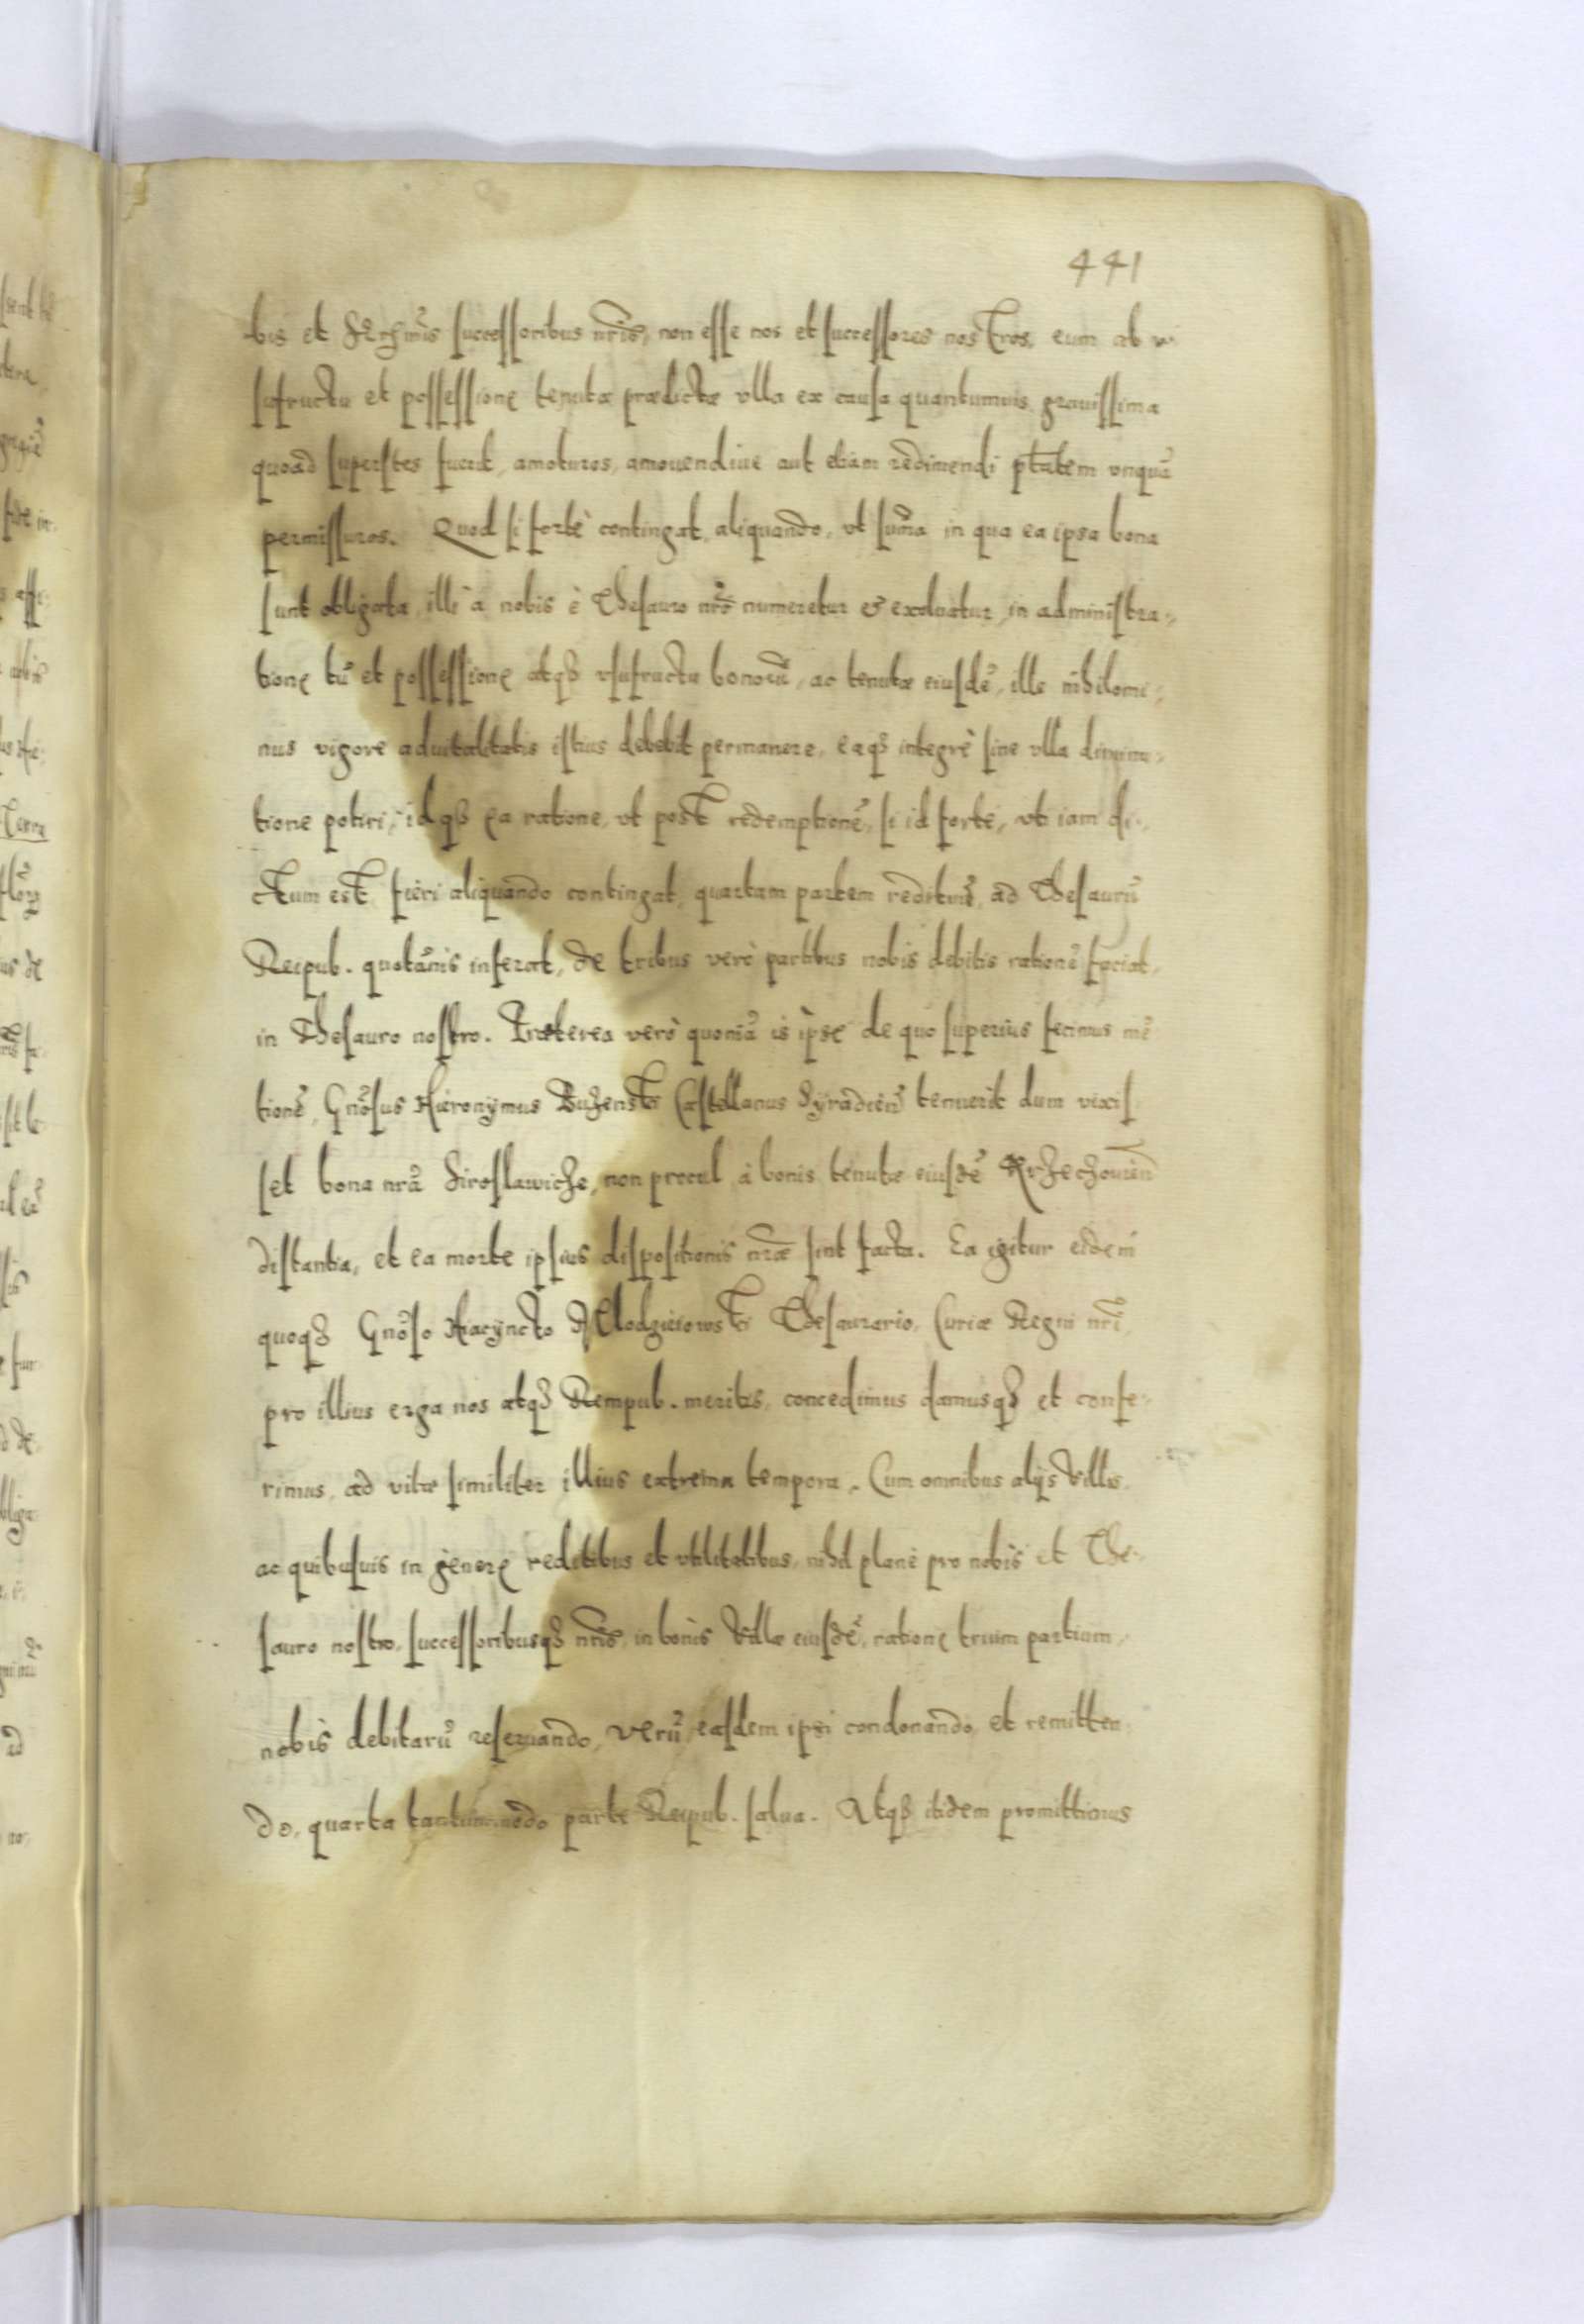 441
bis et Serēmis successoribus nrīs, non esse nos et successores nostros, eum ab v
sufructu et possessione tenutæ prædictæ vlla ex causa quantumuis grauissima
quoad superstes fuerit, amoturos, amouendiue aut etiam redimendi ptātem vnquā
permissuros. Quod si fortè contingat aliquando, vt sum̄a in qua ea ipsa bona
sunt obligata, illi à nobis è Thesauro nrō numeretur et exoluatur, in administra-
tione tū et possessione atqꝫ vsufructu bonorū, ac tenutæ eiusdē, ille nihilomi-
nus vigore aduitalitatis istius debebit permanere, eaqꝫ integrè sine vlla diminu-
tione potiri, idqꝫ ea ratione, vt post redemptionē, si id fortè, vti iam di-
ctum est, fieri aliquando contingat, quartam partem redituū, ad Thesaurū
Reipub. quotān̄is inferat, de tribus verò partibus nobis debitis rationē faciat,
in Thesauro nostro. Præterea verò quoniā is ipse de quo superius fecimus mē
tionē, Gnōsus Hieronymus Buzenski Castellanus Syradień tenuerit dum vixis
set bona nrā Siroslawicze, non procul à bonis tenutæ eiusdē Krzeczouień
distantia, et ea morte ipsius dispositionis nrǣ sint facta. Ea igitur eidem
quoqꝫ Gnōso Hiacyncto Mlodzieiowski Thesaurario Curiæ Regni nrī,
pro illius erga nos atqꝫ Rempub. meritis, concedimus damusqꝫ et confe-
rimus, ad vitæ similiter illius extrema tempora. Cum omnibus alijs Villis
ac quibusuis in genere reditibus et vtilitatibus, nihil planè pro nobis et The-
sauro nostro, successoribusqꝫ nrīs, in bonis Villæ eiusdē, ratione trium partium,
nobis debitarū reseruando, verū easdem ipsi condonando, et remitten-
do, quarta tantummodo parte Reipub. salua. Atqꝫ itidem promittimus